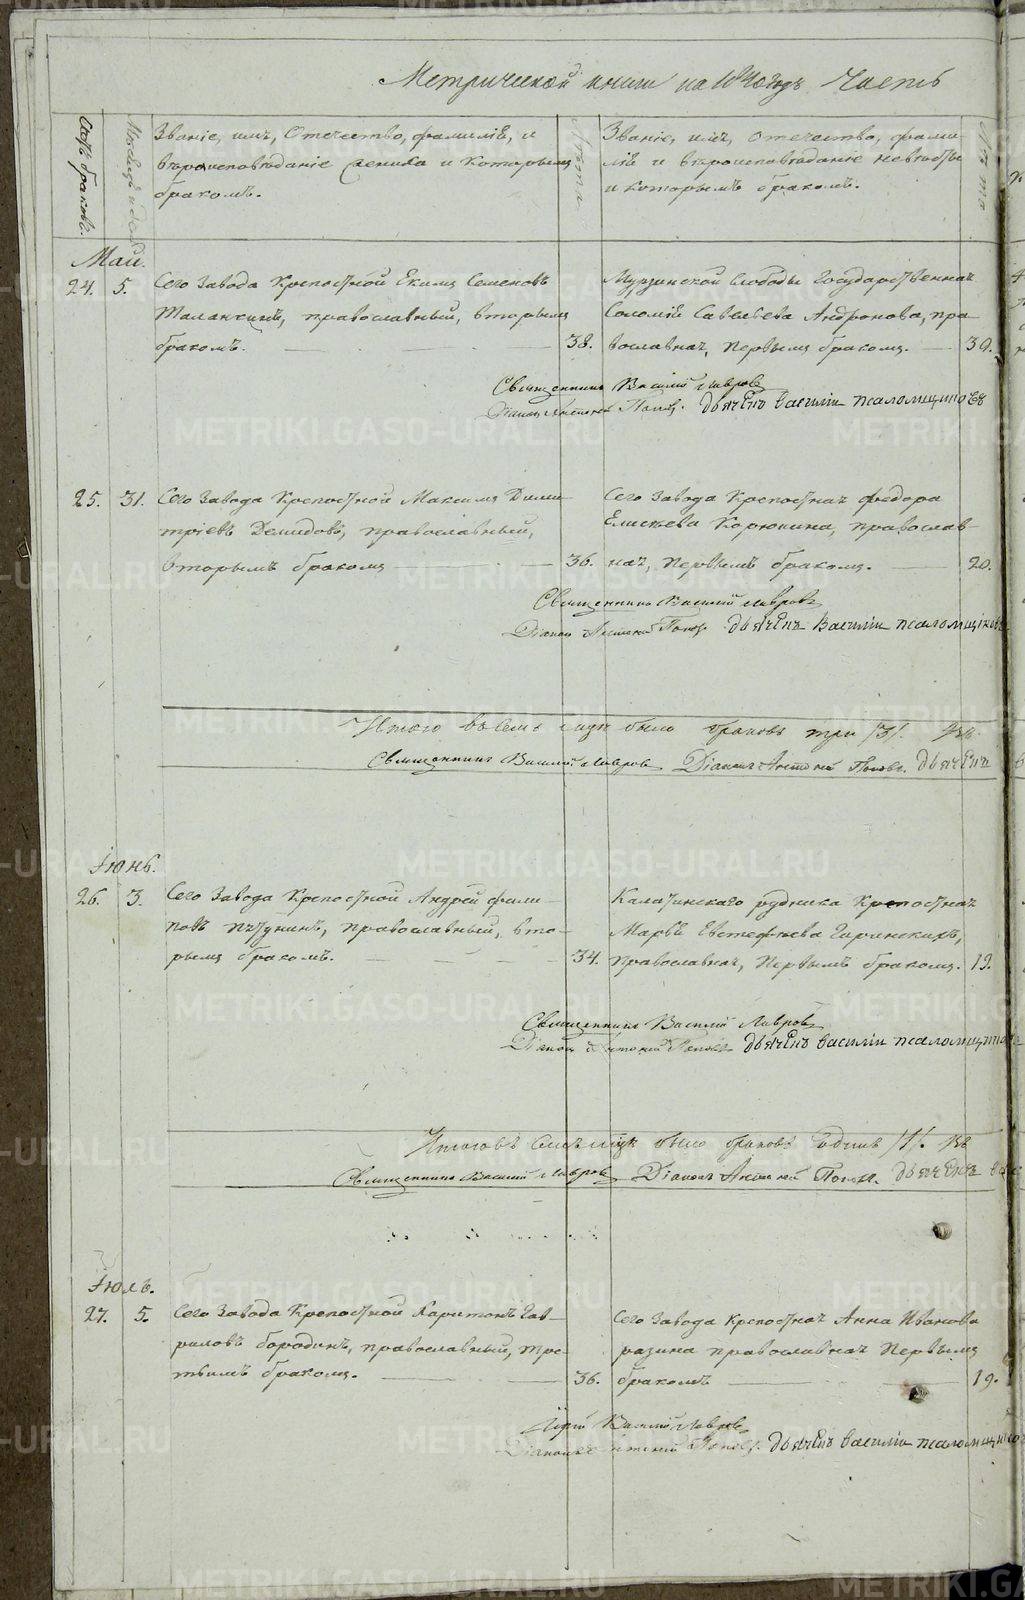 Метрической книги на 1840 годъ Часть
Счетъ браковъ.
Месяцъ и день
Званіе, имя, Отечество, фамилія, и
вѣроисповѣданіе жениха и которымъ
бракомъ.
Лѣта
Званіе, имя, отечество, фами-
лія и вѣроисповѣданіе невѣсты
и которымъ бракомъ.
Лѣта
Маія.
24. 5. Сего завода Крепостной Екимъ Семеновъ
православный, вторымъ
бракомъ. 38.
Мурзинской слободы Государственная
Соломія Савельева Андронова, пра-
вославная, первымъ бракомъ. 39.
Священникъ Василій Лавровъ
Діаконъ Антоній Поповъ. дьячекъ василіи псаломщиковъ
25. 31. Сего завода Крепостной Максимъ Дими-
тріевъ Демидовъ, православный,
вторымъ бракомъ 36.
Сего завода Крепостная федора
Елисѣева Корюкина, православ-
ная, первымъ бракомъ. 20.
Священникъ Василій Лавровъ
Діаконъ Антоній Поповъ. дьячекъ Василіи псаломщиковъ
Итого въ семъ м-цѣ было браковъ три /3/.
Священникъ Василій Лавровъ Діаконъ Антоній Поповъ. дьячекъ
Іюнь.
26. 3. Сего завода Крепостной Андрей фили-
повъ Пѣтунинъ, православный, вто-
рымъ бракомъ. 34.
Калатинскаго рудника Крепостная
Марѳа Евстефѣева Гаринскихъ,
православная, первымъ бракомъ. 19.
Священникъ Василій Лавровъ
Діаконъ Антоній Поповъ дьячекъ василіи псаломщиковъ
Итого въ семъ м-цѣ было браковъ одинъ /1/.
Священникъ Василій Лавровъ Діаконъ Антоній Поповъ. дьячекъ
Іюль.
27. 5. Сего завода Крепостной Харитонъ Гав-
риловъ бородинъ, православный, тре-
тьимъ бракомъ. 36.
Сего завода крепостная Анна Иванова
разина православная первымъ
бракомъ 19.
Іерей Василій Лавровъ
Діаконъ Антоній Поповъ. дьячекъ василіи псаломщиковъ
METRIKI.GASO-URAL.RU